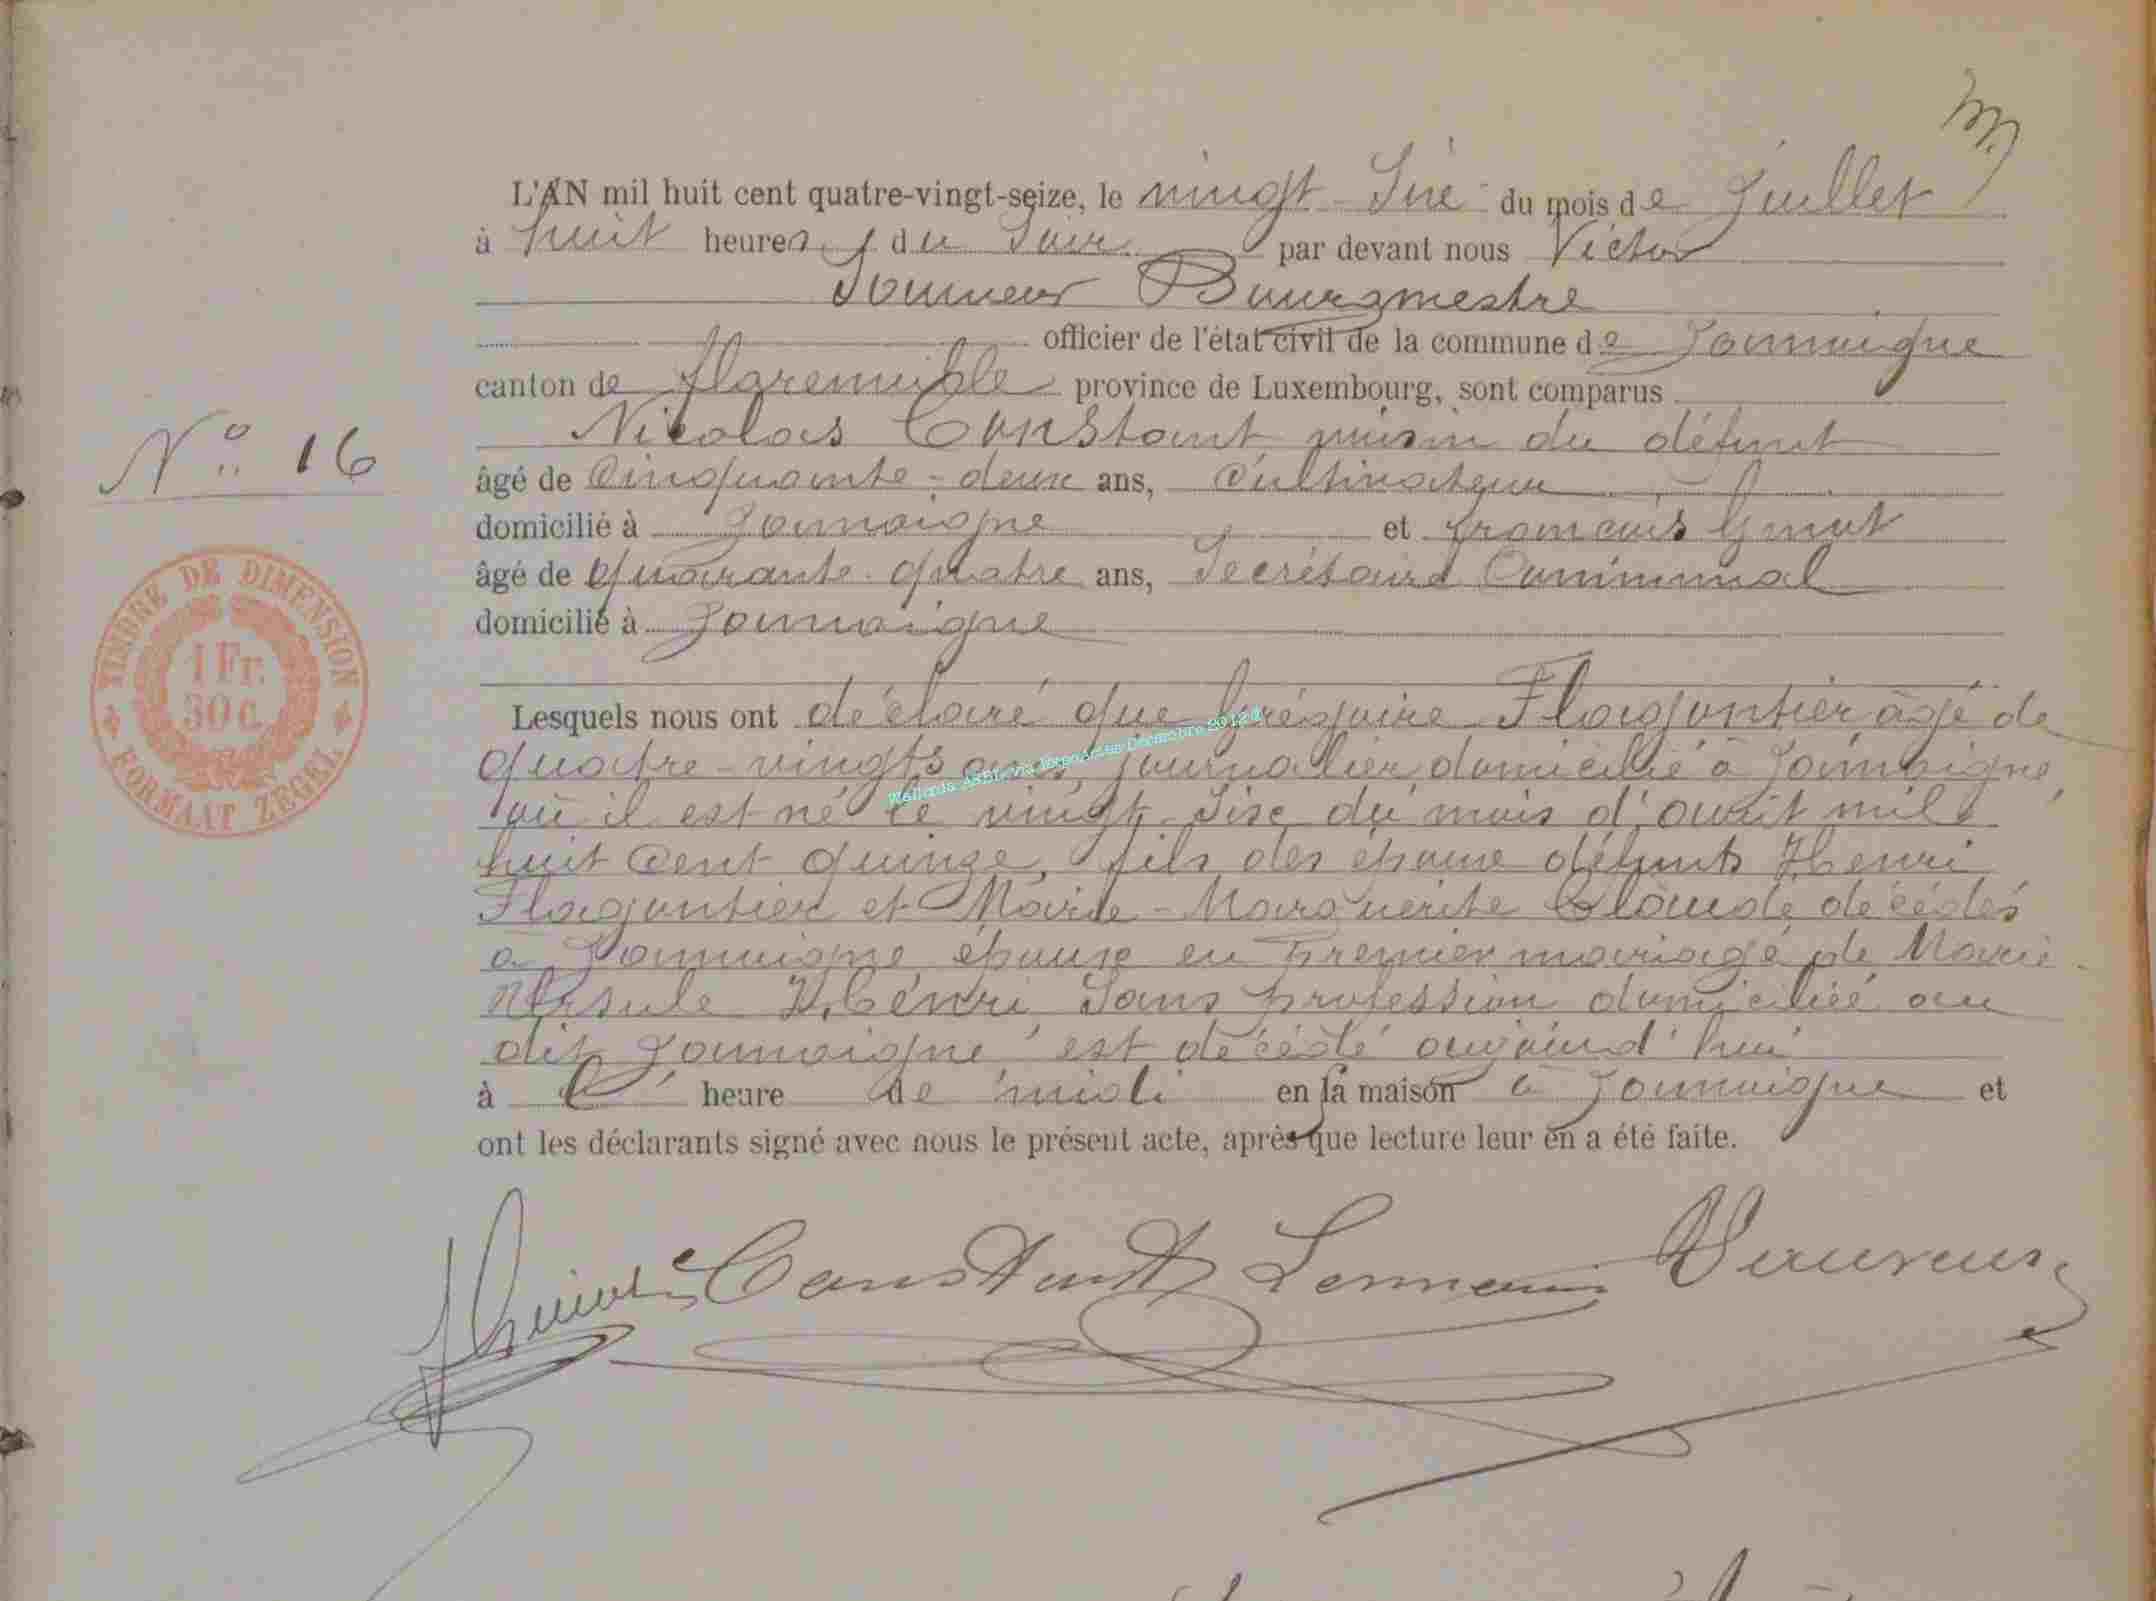 L'AN mil huit cent quatre-vingt-seize, le vingt-Six du mois de Juillet
à huit heures du Soir par devant nous Victor
Bourgmestre
officier de l'état civil de la commune de Jamoigne
canton de florenville province de Luxembourg, sont comparus
Nicolas Constant voisin du défunt
N° 16
âgé de Cinquante-deux ans, Cultivateur
domicilié à Jamoigne et françois
âgé de quarante-quatre ans, Secrétaire Communal
domicilié à Jamoigne
TIMBRE DE DIMENSION
1 Fr.
30 c.
FORMAAT ZEGEL
Lesquels nous ont déclaré que Grégoire Flaguntier âgé de
quatre-vingts ans, journalier, domicilié à Jamoigne,
où il est né le vingt-Six du mois d'avril mil
huit Cent quinze, fils des époux défunts Henri
Flaguntier et Marie-Marguerite Claude décédés
à Jamoigne, époux en premier mariage de Marie
Ursule Henri, Sans profession, domiciliée au
dit Jamoigne, est décédé aujourd'hui
à l' heure de midi en sa maison à Jamoigne et
ont les déclarants signé avec nous le présent acte, après que lecture leur en a été faite.
Constant